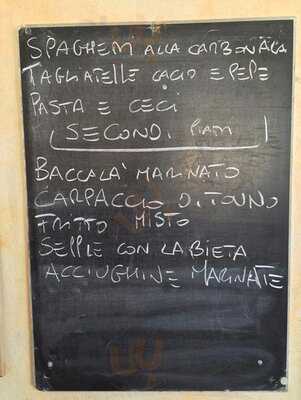 SPAGHETTI ALLA CARBONARA
TAGLIATELLE CACIO E PEPE
PASTA E CECI
SECONDI PIATTI
BACCALA' MARINATO
CARPACCIO DI TONNO
FRITTO MISTO
SEPPIE CON LA BIETA
ACCIUGHINE MARINATE